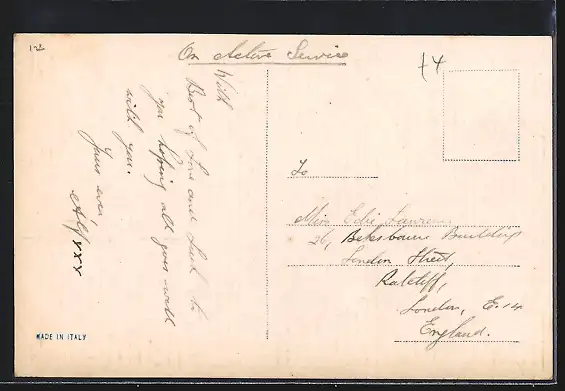 12
On Active Service
+4
With
Best of Love and Luck to
you hoping all goes well
with you.
Yours ever
Alf xxx
To
Miss Edie Lawrence
26, Beksbourne Buildings
London Street,
Ratcliff,
London, E.14
England.
MADE IN ITALY